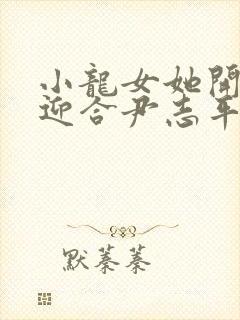 小龍女她開
迎合尹志平
默蓁蓁